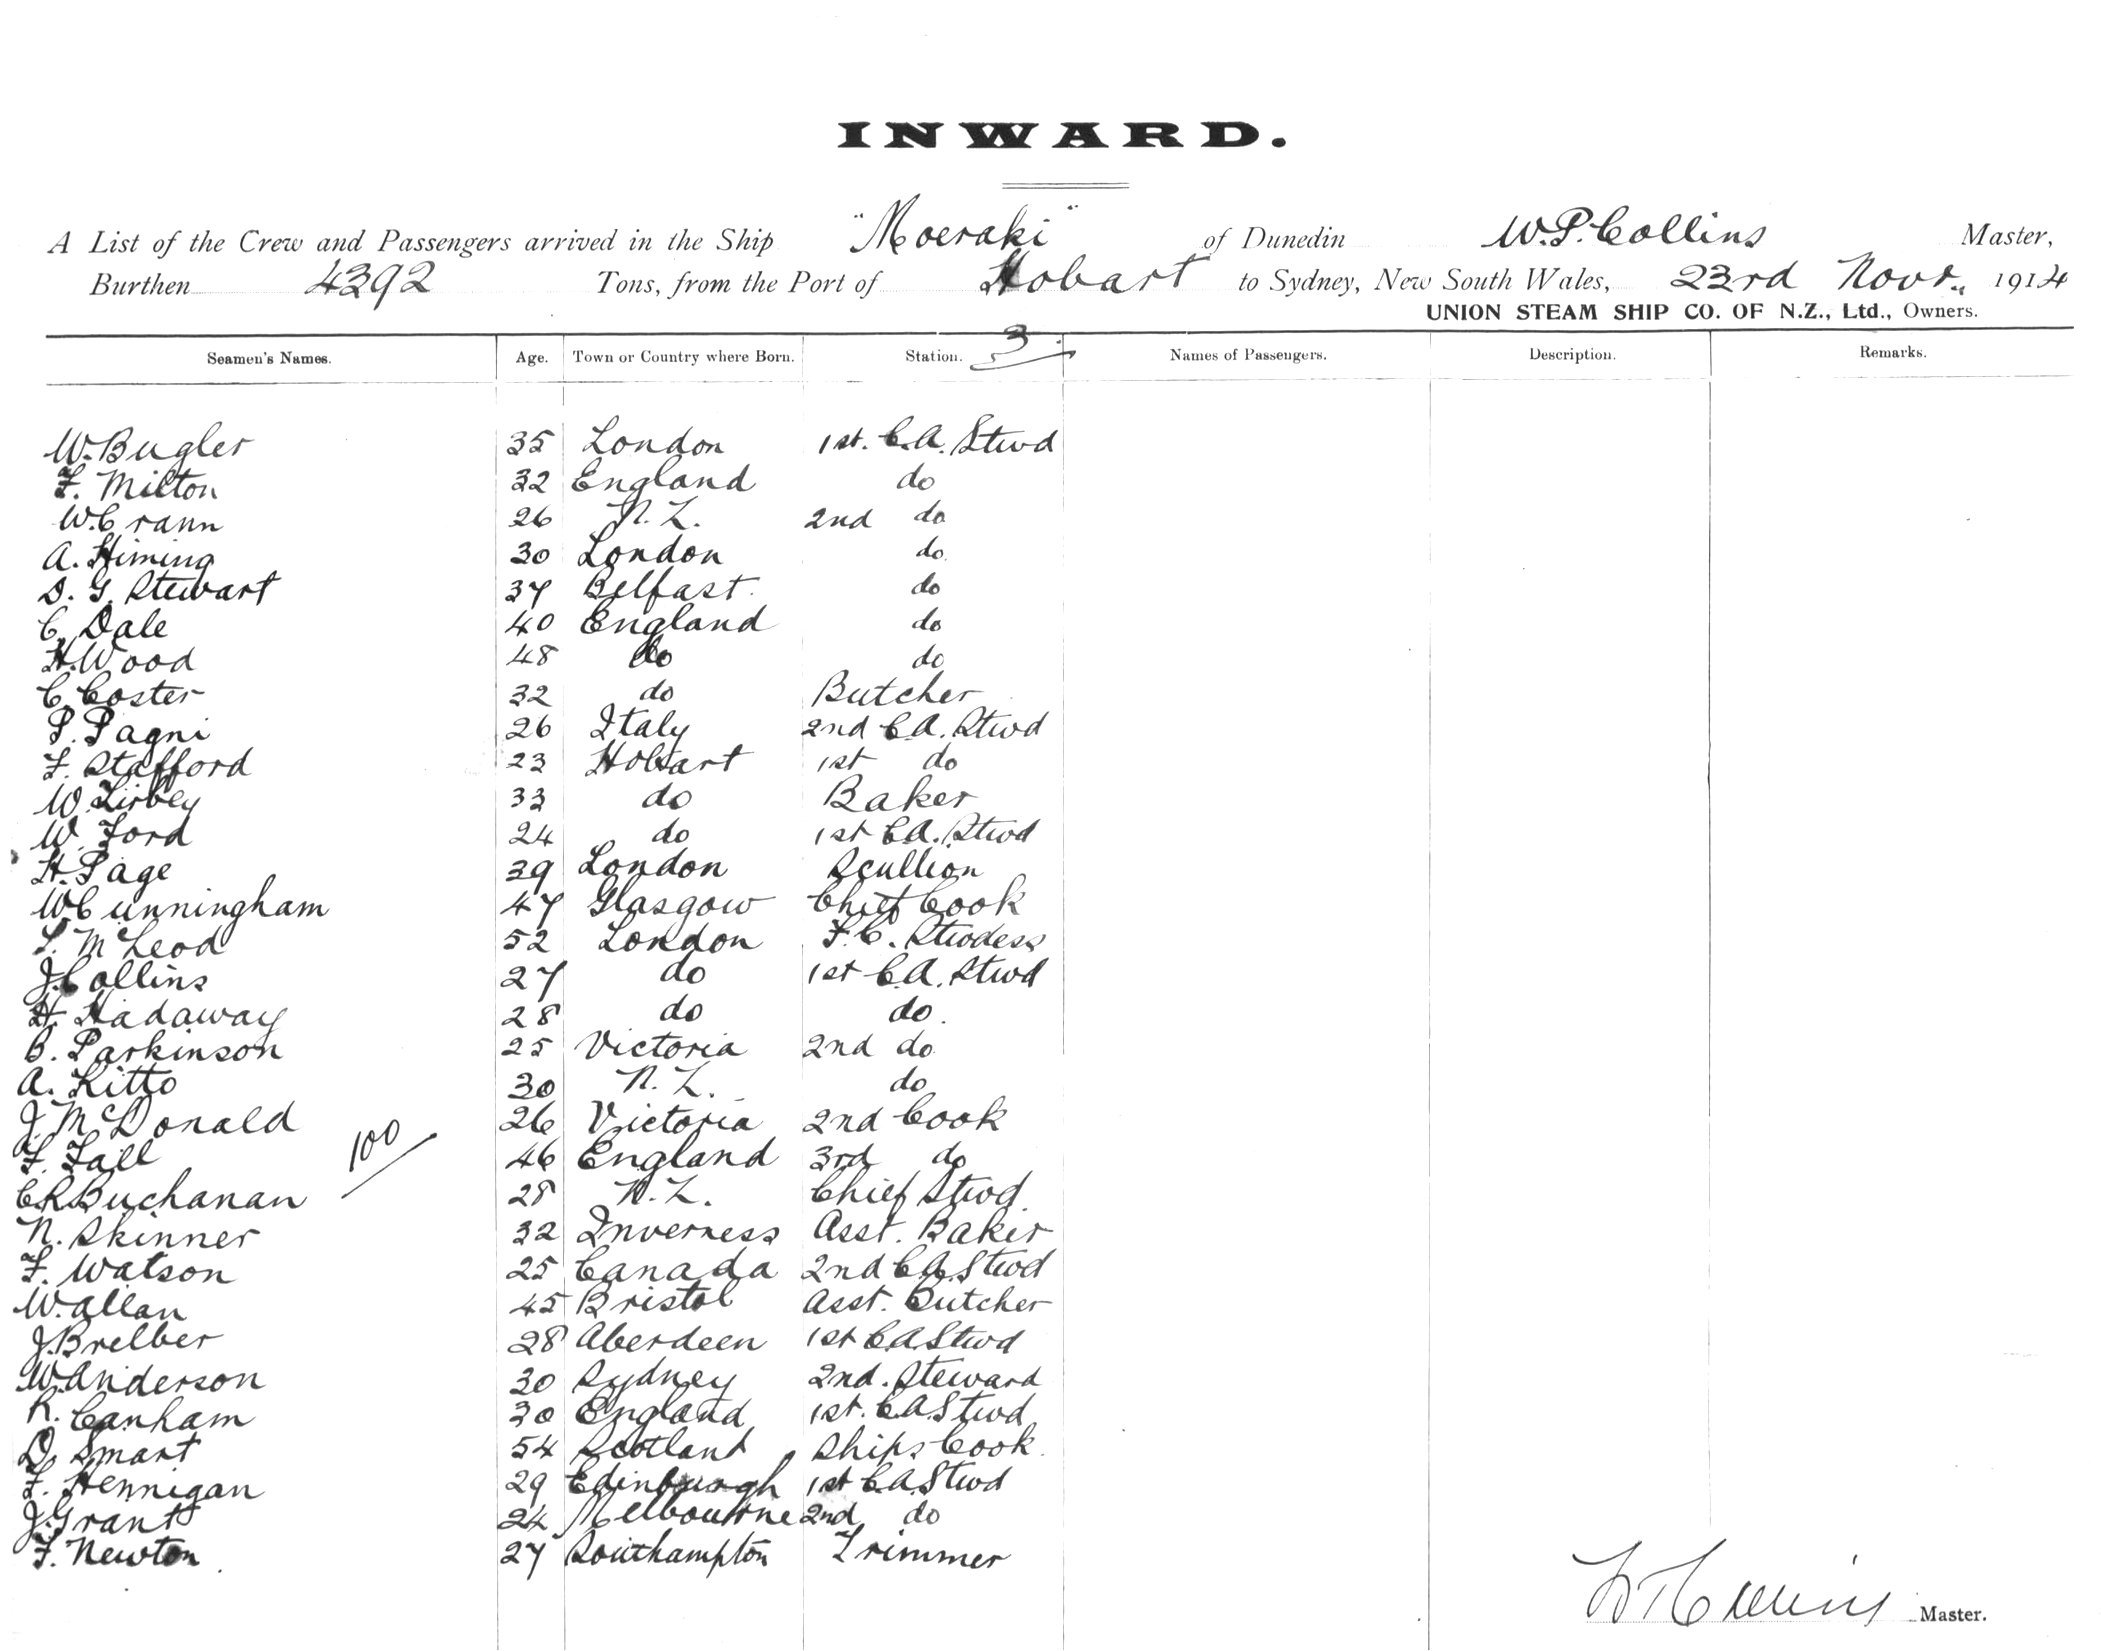 INWARD.
A List of the Crew and Passengers arrived in the Ship "Moeraki" of Dunedin W.P. Collins Master,
Burthen 4392 Tons, from the Port of Hobart to Sydney, New South Wales, 23rd Novr., 1914
UNION STEAM SHIP CO. OF N.Z., Ltd., Owners.
3
Seamen's Names. Age. Town or Country where Born. Station. Names of Passengers. Description. Remarks.
W. Bugler 35 London 1st. C.A. Stwd
F. Milton 32 England do
W. Crann 26 N.Z. 2nd do
A. Himing 30 London do
D. G. Stewart 37 Belfast do
C. Dale 40 England do
H. Wood 48 do do
C. Coster 32 do Butcher
P. Pagni 26 Italy 2nd C.A. Stwd
F. Stafford 23 Hobart 1st do
W. 33 do Baker
W. Ford 24 do 1st C.A. Stwd
H. Page 39 London Scullion
W Cunningham 47 Glasgow Chief Cook
McLeod 52 London F.C. Stwdess
J. Collins 27 do 1st C.A. Stwd
H. Hadaway 28 do do.
B. Parkinson 25 Victoria 2nd do
A. Kitto 30 N.Z. do
J. McDonald 26 Victoria 2nd Cook
100
F. Fall 46 England 3rd do
C R Buchanan 28 N.Z. Chief Stwd
N. Skinner 32 Inverness Asst. Baker
F. Watson 25 Canada 2nd C A Stwd
W. Allan 45 Bristol Asst. Butcher
J. Brelber 28 Aberdeen 1st C.A Stwd
W. Anderson 30 Sydney 2nd. Steward
R. Canham 30 England 1st. C.A Stwd
D. Smart 54 Scotland Ships Cook.
F. Hennigan 29 Edinburgh 1st C.A. Stwd
J. Grant 24 Melbourne 2nd do
F. Newton 27 Southampton Trimmer
W P Collins Master.